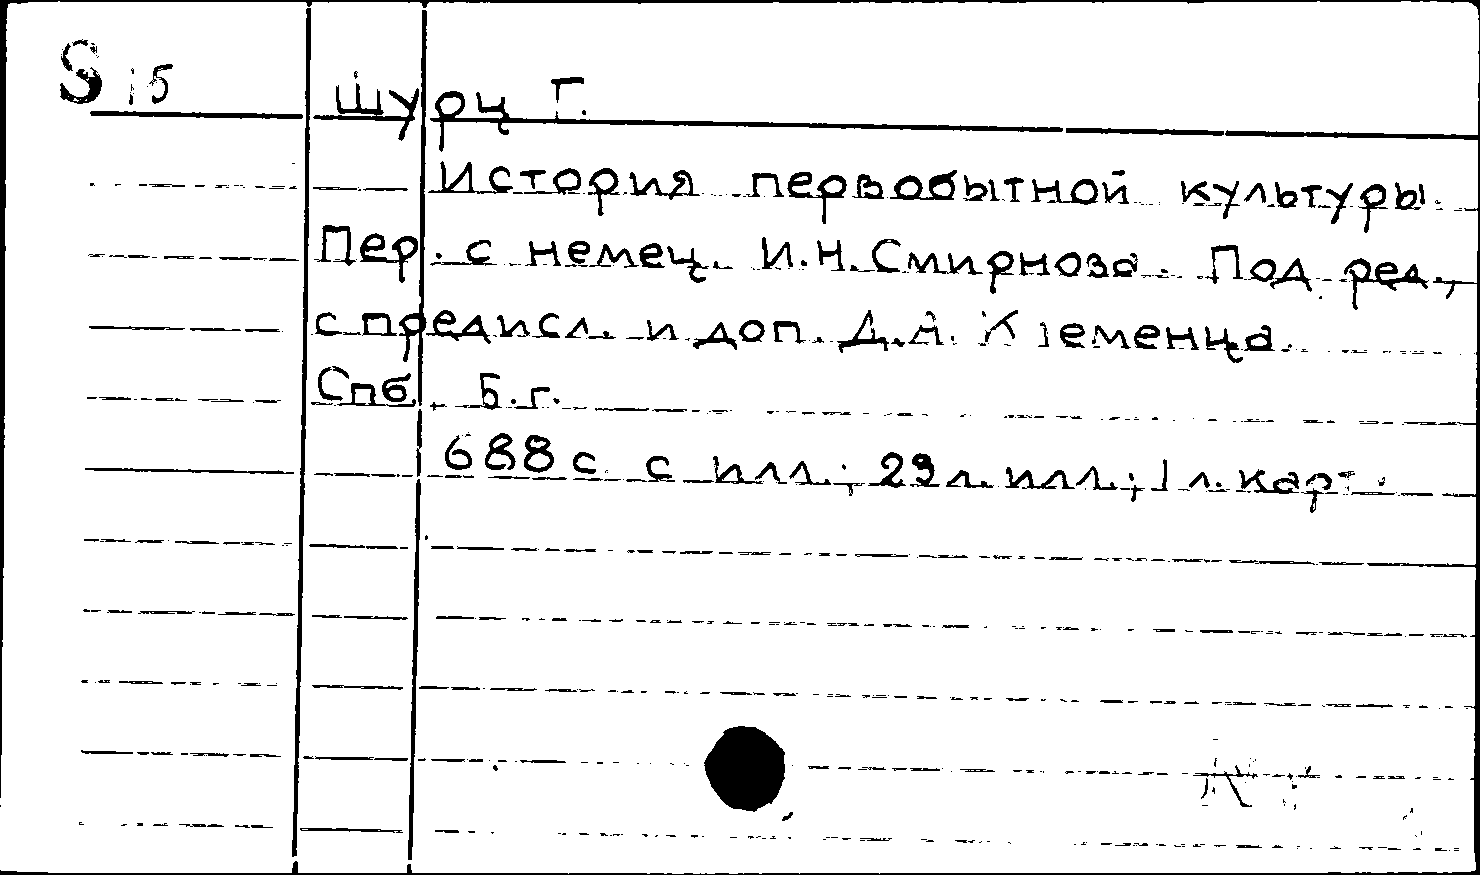 S 15
Шурц Г.
История первобытной культуры.
Пер. с немец. И.Н.Смирнова. Под ред.,
с предисл. и доп. Д.А. Клеменца.
Спб., Б.г.
688 с. с илл.; 29 л. илл.; 1 л. карт.